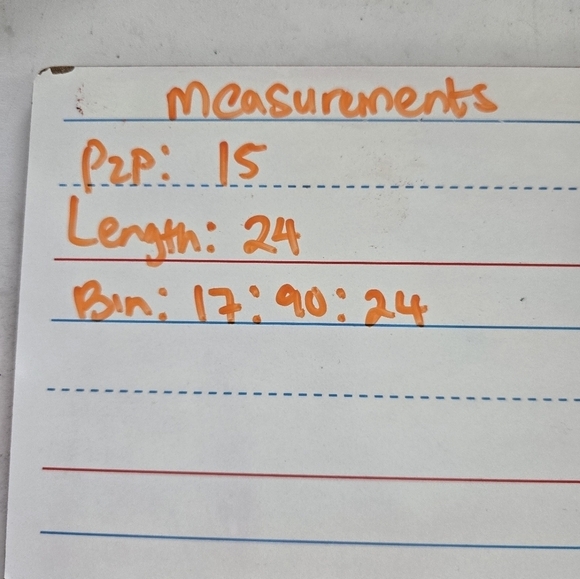 Measurements
P2P: 15
Length: 24
Bin: 17:90:24